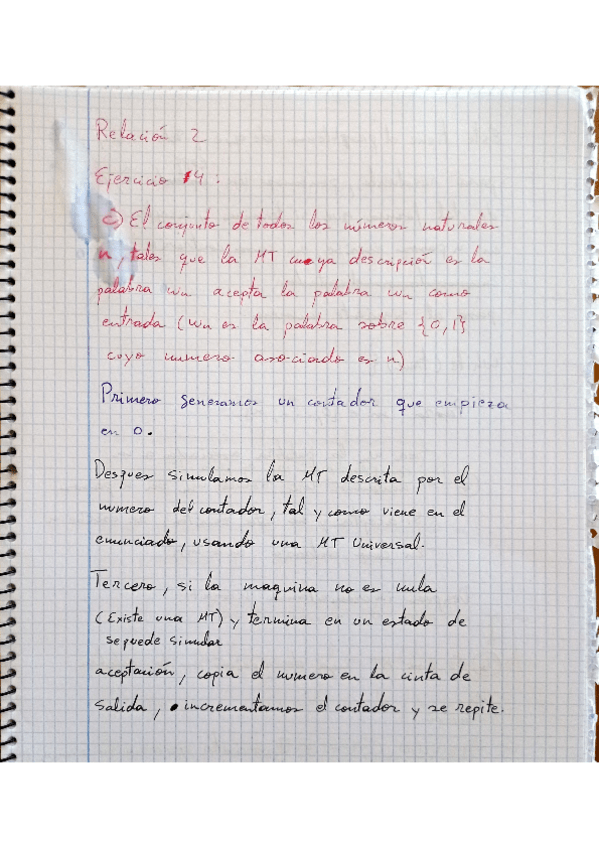 Relación 2
Ejercicio 14:
c) El conjunto de todos los números naturales
n, tales que la MT cuya descripción es la
palabra wn acepta la palabra wn como
entrada (wn es la palabra sobre {0,1}
cuyo numero asociado es n)
Primero generamos un contador que empieza
en 0.
Despues simulamos la MT descrita por el
numero del contador, tal y como viene en el
enunciado, usando una MT Universal.
Tercero, si la maquina no es nula
(Existe una MT) y termina en un estado de
se puede simular
aceptación, copia el numero en la cinta de
salida, incrementamos el contador y se repite.